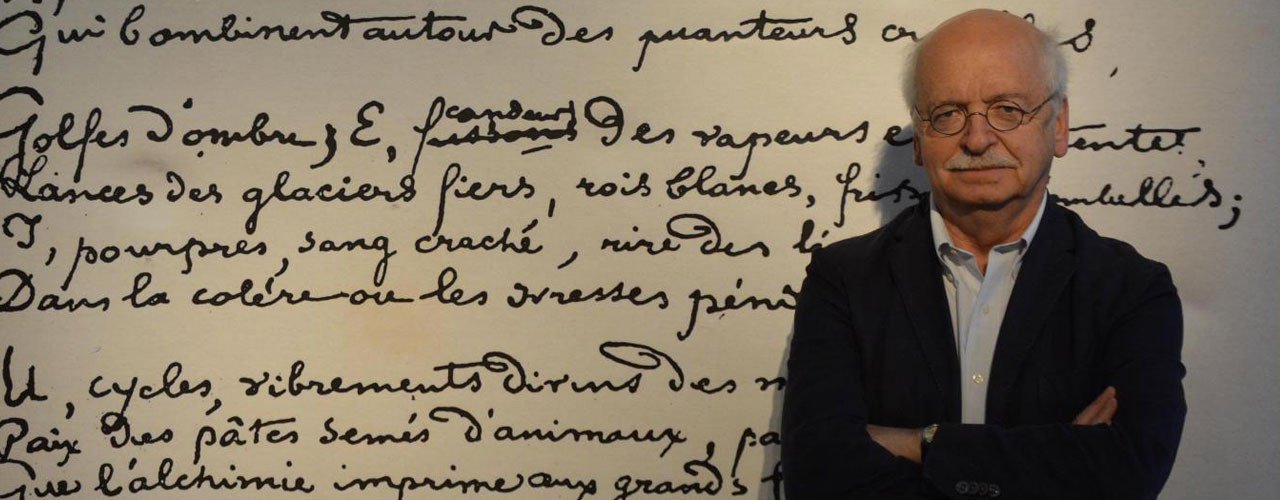 Qui bombinent autour des puanteurs
Golfes d'ombre; E, candeurs frissons des vapeurs et tentes,
Lances des glaciers fiers, rois blancs, frissons d'ombelles;
I, pourpres, sang craché, rire des
Dans la colère ou les ivresses
U, cycles, vibrements divins des
Paix des pâtis semés d'animaux,
Que l'alchimie imprime aux grands